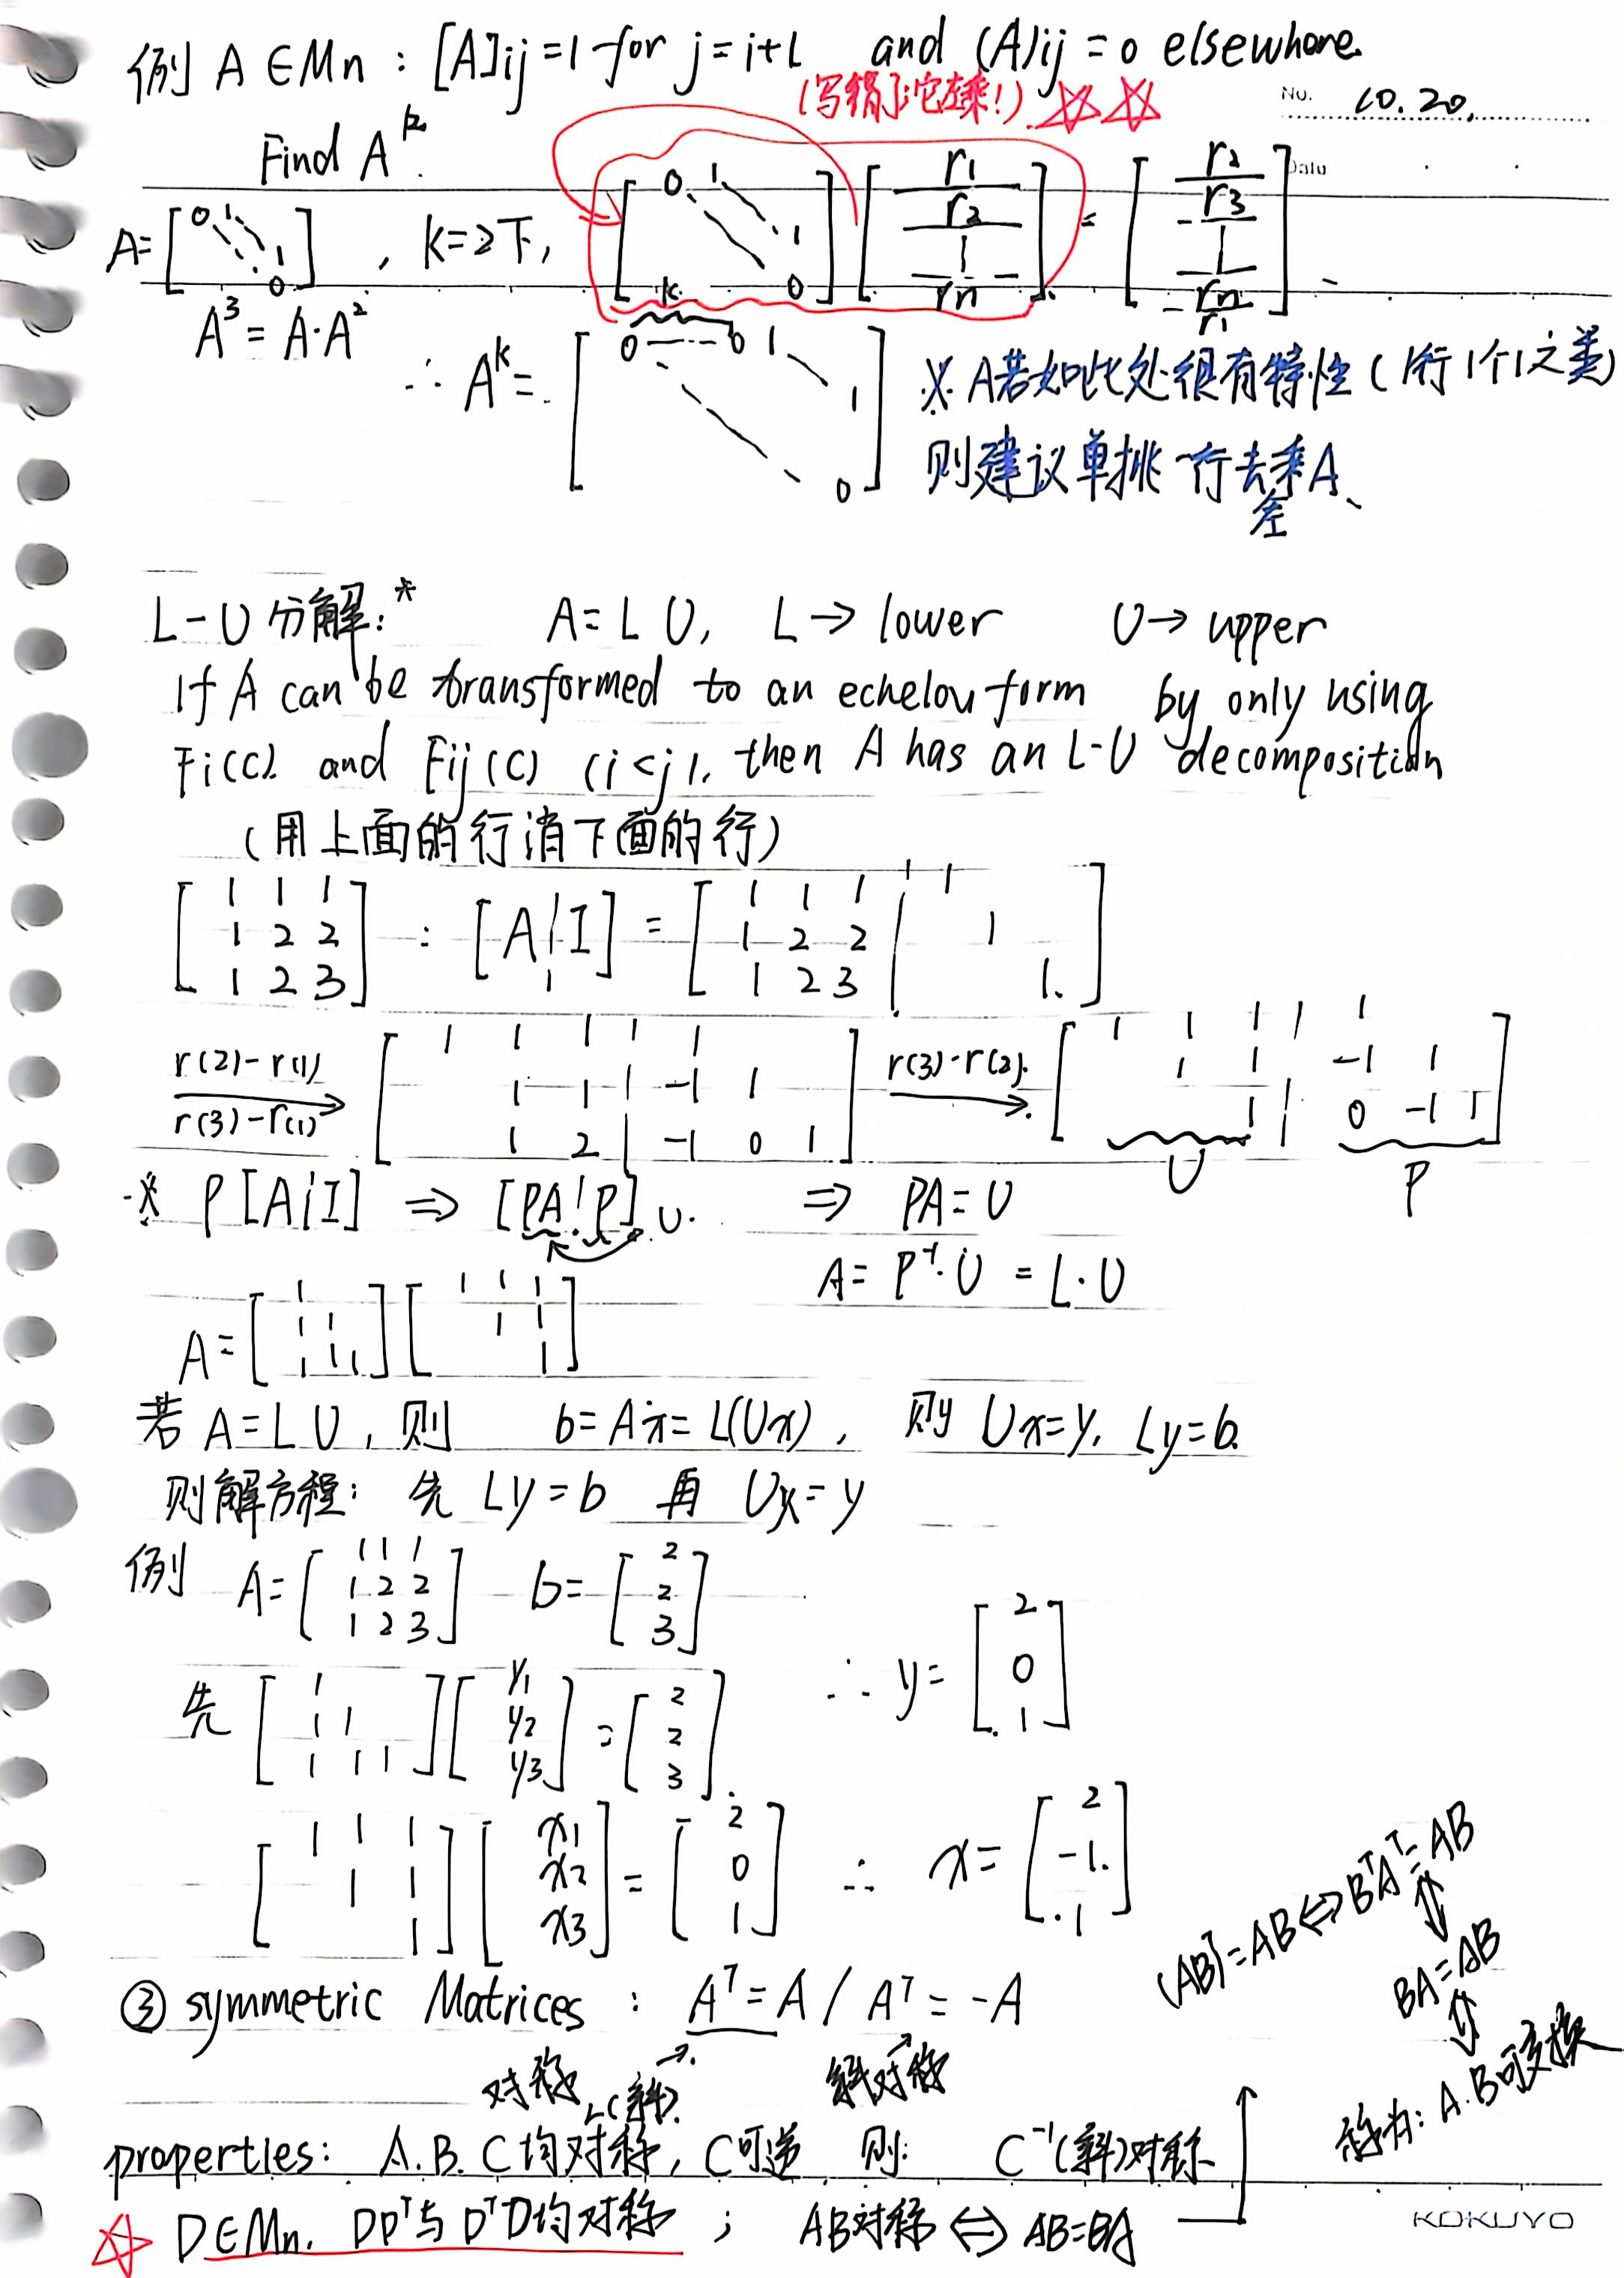 例 A∈Mn : [A]ij=1 for j=i+1 and (A)ij=0 elsewhere.
(写错了:它左乘!) ☆☆
No. 10.20.
Date
Find A^k.
A=[0 1 ⋱ 1 0], k=2下, [0 1 ⋱ 1 0][r1 r2 | rn] = [r2 r3 | rn r1]
A³=A·A²
k
∴ A^k= [0---0 1 ⋱ 1 0]
※ A若如此处很有特性(1行1个1之类)
则建议单挑一行去乘A、
左
L-U 分解:* A=LU, L→lower U→upper
If A can be transformed to an echelon form by only using
Fi(c) and Eij(c) (i<j), then A has an L-U decomposition
(用上面的行消下面的行)
[1 1 1; 1 2 2; 1 2 3] : [A|I] = [1 1 1 | 1; 1 2 2 | 1; 1 2 3 | 1]
r(2)-r(1) r(3)-r(1) → [1 1 1 | 1; 1 1 | -1 1; 1 2 | -1 0 1] r(3)-r(2) → [1 1 1 | 1; 1 1 | -1 1; 1 | 0 -1 1]
U P
※ P[A|I] ⇒ [PA|P] U. ⇒ PA=U
A=P⁻¹·U=L·U
A=[1; 1 1; 1 1 1][1 1 1; 1 1; 1]
若 A=LU, 则 b=Ax=L(Ux), 则 Ux=y, Ly=b.
则解方程: 先 Ly=b 再 Ux=y
例 A=[1 1 1; 1 2 2; 1 2 3] b=[2; 2; 3]
先 [1; 1 1; 1 1 1][y1; y2; y3]=[2; 2; 3]. ∴ y=[2; 0; 1]
[1 1 1; 1 1; 1][x1; x2; x3]=[2; 0; 1] ∴ x=[2; -1; 1]
(AB)ᵀ=AB⇔BᵀAᵀ=AB
⇕
BA=AB
⇕
称为: A.B可交换
③ symmetric Matrices : Aᵀ=A / Aᵀ=-A
对称 斜对称
(斜)
properties: A.B.C均对称, C可逆 则: C⁻¹(斜)对称
☆ D∈Mn. DDᵀ与DᵀD均对称 ; AB对称⇔AB=BA
KOKUYO